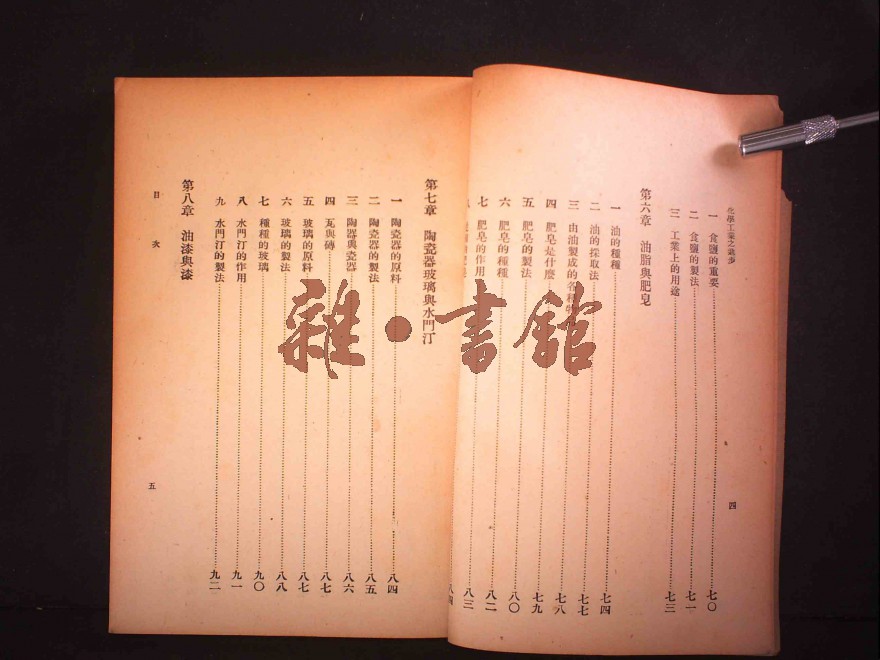 化學工業之進步
一 食鹽的重要 七〇
二 食鹽的製法 七一
三 工業上的用途 七三
第六章 油脂與肥皂
一 油的種種 七四
二 油的採取法 七七
三 由油製成的各種 七八
四 肥皂是什麼 七九
五 肥皂的製法 八〇
六 肥皂的種種 八二
七 肥皂的作用 八三
四
第七章 陶瓷器玻璃與水門汀
一 陶瓷器的原料 八四
二 陶瓷器的製法 八五
三 陶器與瓷器 八六
四 瓦與磚 八七
五 玻璃的原料 八七
六 玻璃的製法 八八
七 種種的玻璃 九〇
八 水門汀的作用 九一
九 水門汀的製法 九二
第八章 油漆與漆
目次
五
雜·書館